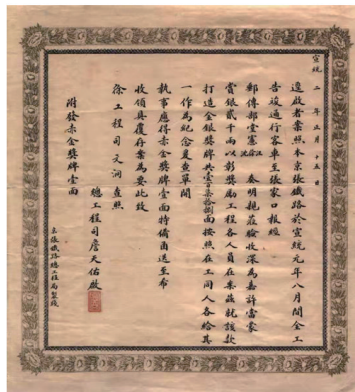 宣統二年正月十五日
逕啟者案照本京張鐵路於宣統元年八月間全工
告竣通行客車至張家口報經
郵傳部堂憲徐沈汪奏明親蒞驗收深為嘉許當蒙
賞銀貳千兩以彰獎勵工程各人員在案茲就該款
打造金銀獎牌共壹百柒拾捌面按照在工同人各給其
一作為紀念憂查單開
執事應得赤金獎牌壹面特備函送至希
收領具覆存案為要此致
徐工程司文洞查照
總工程司詹天佑啟
附發赤金獎牌壹面
京張鐵路總工程局製箋